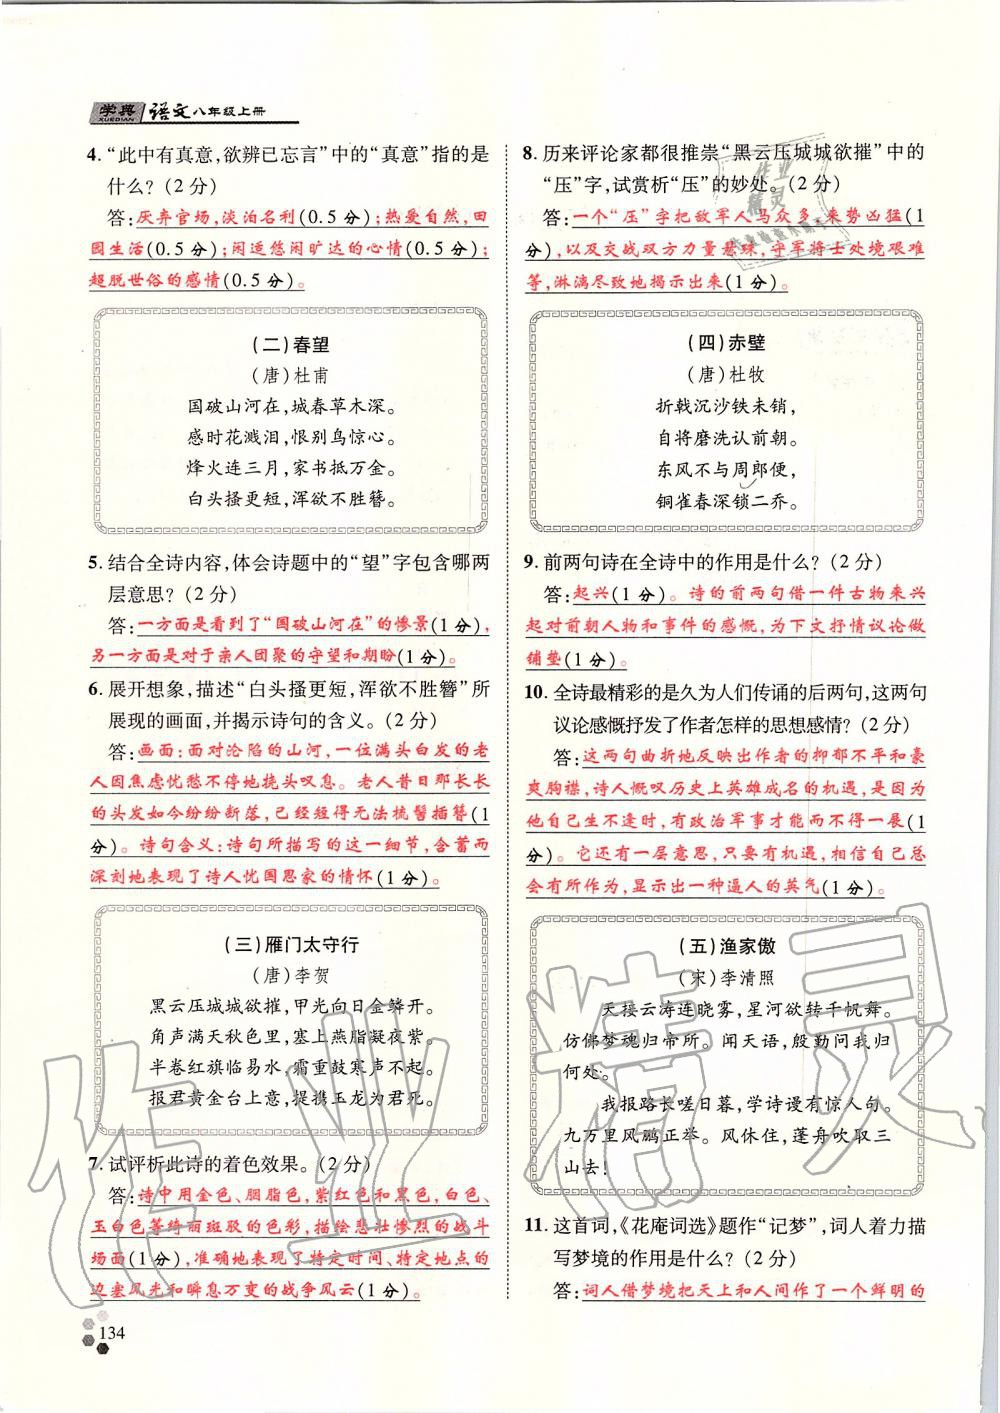 学典
XUEDIAN
语文八年级上册
4. “此中有真意,欲辨已忘言”中的“真意”指的是
什么?(2分)
答:厌弃官场,淡泊名利(0.5分);热爱自然,田
园生活(0.5分);闲适悠闲旷达的心情(0.5分);
超脱世俗的感情(0.5分)。
(二)春望
(唐)杜甫
国破山河在,城春草木深。
感时花溅泪,恨别鸟惊心。
烽火连三月,家书抵万金。
白头搔更短,浑欲不胜簪。
5. 结合全诗内容,体会诗题中的“望”字包含哪两
层意思?(2分)
答:一方面是看到了“国破山河在”的惨景(1分),
另一方面是对于亲人团聚的守望和期盼(1分)。
6. 展开想象,描述“白头搔更短,浑欲不胜簪”所
展现的画面,并揭示诗句的含义。(2分)
答:画面:面对沦陷的山河,一位满头白发的老
人因焦虑忧愁不停地挠头叹息。老人昔日那长长
的头发如今纷纷断落,已经短得无法梳髻插簪(1
分)。诗句含义:诗句所描写的这一细节,含蓄而
深刻地表现了诗人忧国思家的情怀(1分)。
(三)雁门太守行
(唐)李贺
黑云压城城欲摧,甲光向日金鳞开。
角声满天秋色里,塞上燕脂凝夜紫。
半卷红旗临易水,霜重鼓寒声不起。
报君黄金台上意,提携玉龙为君死。
7. 试评析此诗的着色效果。(2分)
答:诗中用金色、胭脂色,紫红色和黑色,白色、
玉白色等绮丽斑驳的色彩,描绘悲壮惨烈的战斗
场面(1分),准确地表现了特定时间、特定地点的
边塞风光和瞬息万变的战争风云(1分)。
134
8. 历来评论家都很推崇“黑云压城城欲摧”中的
“压”字,试赏析“压”的妙处。(2分)
答:一个“压”字把敌军人马众多,来势凶猛(1
分),以及交战双方力量悬殊,守军将士处境艰难
等,淋漓尽致地揭示出来(1分)。
(四)赤壁
(唐)杜牧
折戟沉沙铁未销,
自将磨洗认前朝。
东风不与周郎便,
铜雀春深锁二乔。
9. 前两句诗在全诗中的作用是什么?(2分)
答:起兴(1分)。诗的前两句借一件古物来兴
起对前朝人物和事件的感慨,为下文抒情议论做
铺垫(1分)。
10. 全诗最精彩的是久为人们传诵的后两句,这两句
议论感慨抒发了作者怎样的思想感情?(2分)
答:这两句曲折地反映出作者的抑郁不平和豪
爽胸襟,诗人慨叹历史上英雄成名的机遇,是因为
他自己生不逢时,有政治军事才能而不得一展(1
分)。它还有一层意思,只要有机遇,相信自己总
会有所作为,显示出一种逼人的英气(1分)。
(五)渔家傲
(宋)李清照
天接云涛连晓雾,星河欲转千帆舞。
仿佛梦魂归帝所。闻天语,殷勤问我归
何处。
我报路长嗟日暮,学诗谩有惊人句。
九万里风鹏正举。风休住,蓬舟吹取三
山去!
11. 这首词,《花庵词选》题作“记梦”,词人着力描
写梦境的作用是什么?(2分)
答:词人借梦境把天上和人间作了一个鲜明的
作业精灵
作业
精灵